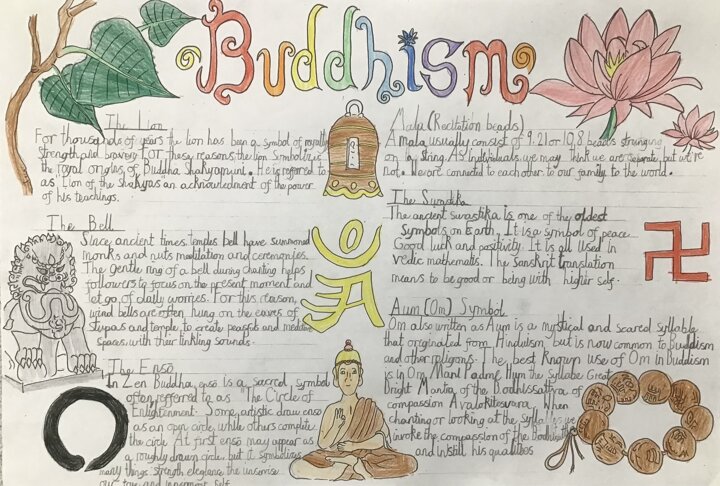 Buddhism
The Lion
For thousands of years the lion has been a symbol of royalty
strength and bravery for these reasons the lion symbolizes
the royal origins of Buddha Shakyamuni. He is referred to
as Lion of the Shakyas an acknowledgment of the power
of his teachings.
The Bell
Since ancient times, temples bell have summoned
monks and nuns meditation and ceremonies.
The gentle ring of a bell during chanting helps
followers to focus on the present moment and
let go of daily worries. For this reason,
wind bells are often hung on the eaves of
stupas and temple to create peaceful and
spaces with their tinkling sounds.
The Enso
In Zen Buddha, enso is a sacred symbol
often referred to as "The Circle of
Enlightenment. Some artistic draw enso
as an open circle, while others complete
the circle. At first enso may appear as
a roughly drawn circle, but it symbolizes
many things strength elegance the universe
our true and innermost self
Mala (Recitation beads)
A mala usually consist of 9. 21 or 108 beads
on a string. As individuals we may think we are separate, but we're
not. We are connected to each other to our family to the world.
The
The ancient swastika is one of the oldest
symbols on Earth. It is a symbol of peace
Good luck and positivity. It is all used in
vedic mathematics. The Sanskrit translation
means to be good or being with higher self.
Aum (Om) Symbol
Om also written as Aum is a mystical and scared syllable
that originated from Hinduism, but is now common to Buddism
and other religions. The best known use of Om in Buddism
is in Om Mani Padme Hum the Syllabe Great
bright Mantra of the Bodhissattva of
compassion Avalokitesvara. When
chanting or looking at the we
invoke the compassion of the
and instill his qualities